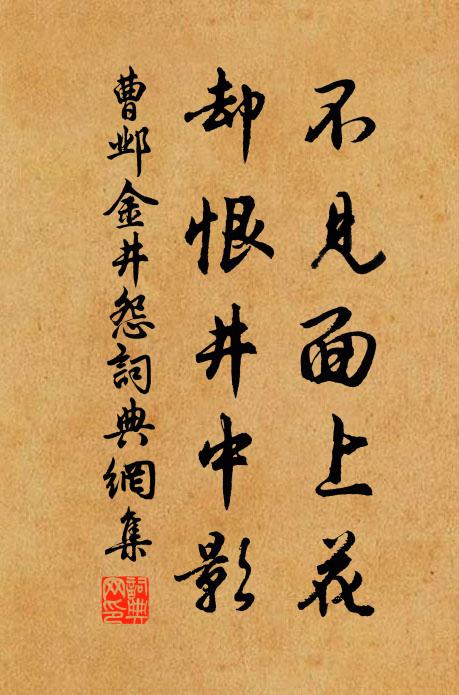 不見面上花
却恨井中影
曹邺金井怨詞典網集
詞典网印